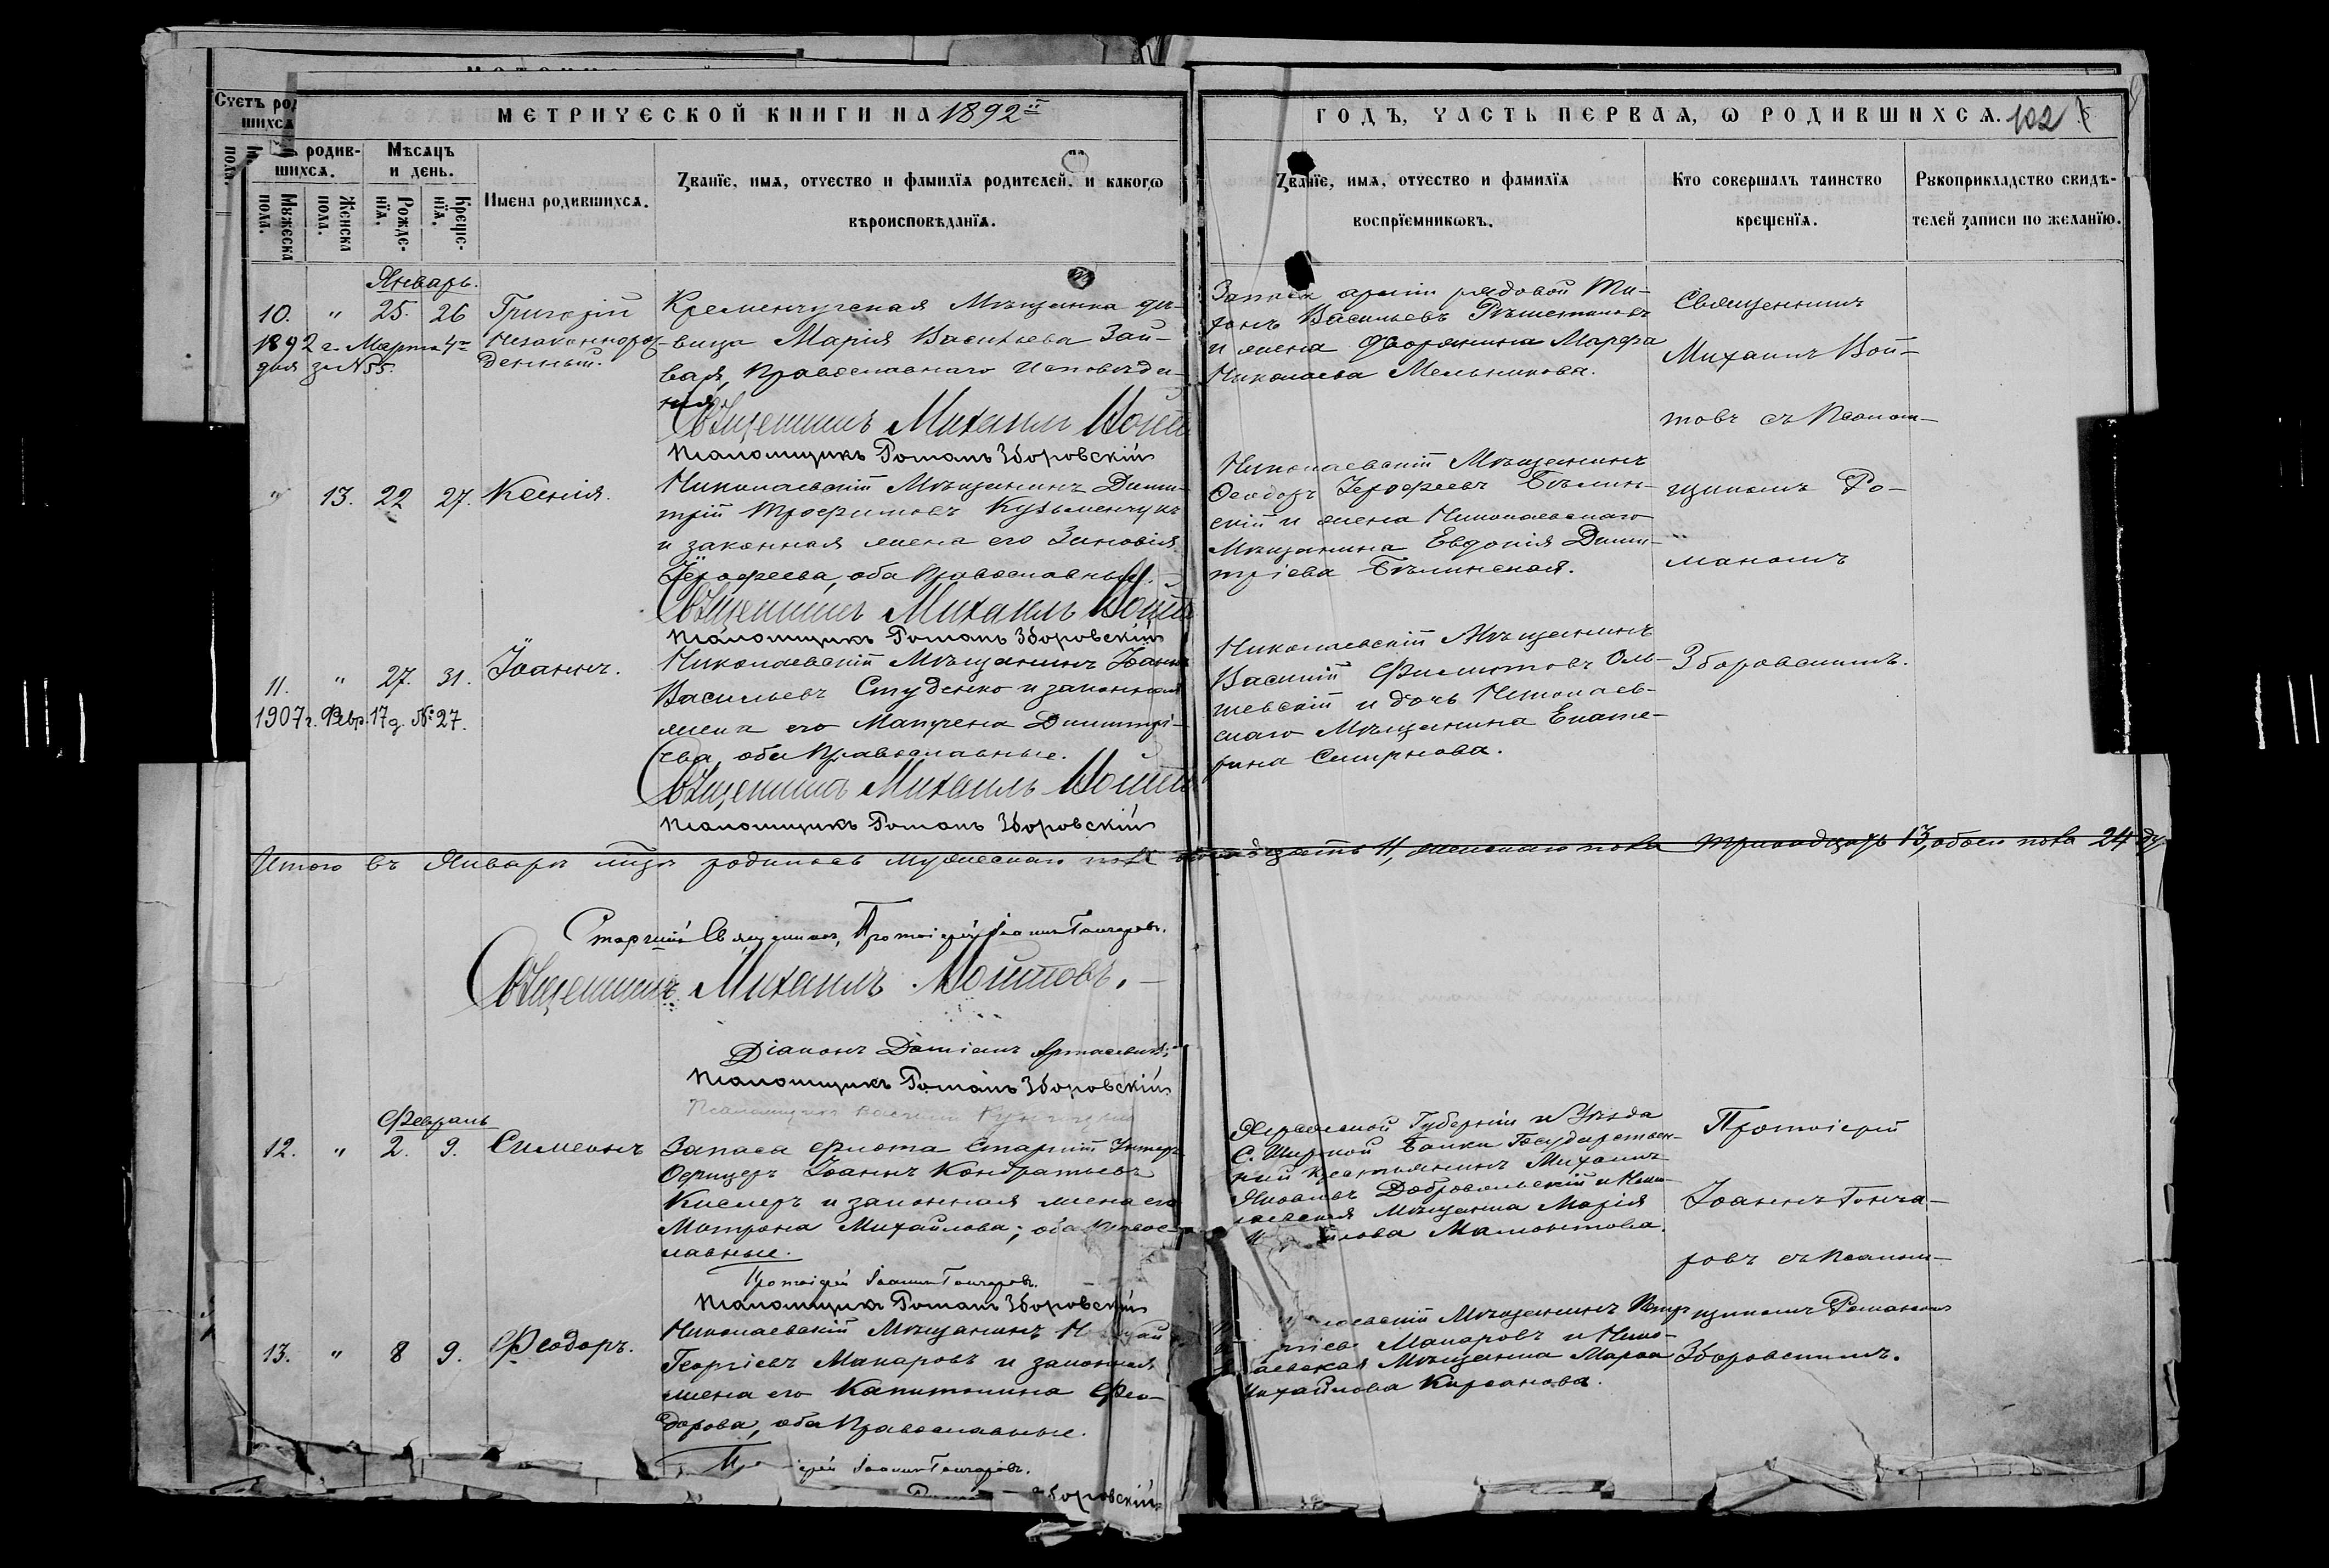 МЕТРИЧЕСКОЙ КНИГИ НА 1892й
ГОДЪ, ЧАСТЬ ПЕРВАЯ, Ѡ РОДИВШИХСЯ.
102
Счетъ ро
шихся
родив-
шихся.
Мѣсяцъ
и день.
Имена родившихся.
Званїе, имя, отчество и фамилїя родителей, и какогѡ
вѣроисповѣданїя.
Званїе, имя, отчество и фамилїя
воспрїемникѡвъ.
Кто совершалъ таинство
крещенїя.
Рукоприкладство свидѣ-
телей записи по желанїю.
пола.
Мужеска
пола.
Женска
пола.
Рожде-
нїя.
Креще-
нїя.
Январь.
10. " 25. 26 Григорій
1892 г. Марта 4го Незаконнорож-
дня за № 55. денный.
Кременчугская Мѣщанка дѣ-
вица Марія Васильева Зай-
вая, Православнаго исповѣда-
нія
Священникъ Михаилъ Войт
Псаломщикъ Романъ Зборовскій
Запаса арміи рядовой Ти-
хонъ Васильевъ Рѣшетников
и жена дворянина Марфа
Николаева Мельникова.
Священникъ
Михаилъ Вой-
товъ съ Псалом-
" 13. 22 27. Ксенія.
Николаевскій Мѣщанинъ Дими-
трій Трофимовъ Кузьменчукъ
и законная жена его Зиновія
Іерофеева, оба Православные.
Священникъ Михаилъ Войт
Псаломщикъ Романъ Зборовскій
Николаевскій Мѣщанинъ
Ѳеодоръ Іерофеевъ Бѣлин-
скій и жена Николаевскаго
Мѣщанина Евдокія Дими-
тріева Бѣлинская.
щикомъ Ро-
маномъ
11. " 27. 31. Іоаннъ.
1907 г. Февр. 17 д. № 27.
Николаевскій Мѣщанинъ Іоаннъ
Васильевъ Студенко и законная
жена его Матрена Димитрі-
ева, оба Православные.
Священникъ Михаилъ Войтов
Псаломщикъ Романъ Зборовскій
Николаевскій Мѣщанинъ
Василій Филиповъ Оль-
шевскій и дочь Николаев-
скаго Мѣщанина Екате-
рина Смирнова.
Зборовскимъ.
Итого въ Январѣ м-цѣ родилось мужескаго пола одинадцать 11, женскаго пола тринадцать 13, обоего пола 24 ду
Старшій Священникъ, Протоіерей Іоаннъ Гончаровъ.
Священникъ Михаилъ Войтовъ.
Діаконъ Даміанъ
Псаломщикъ Романъ Зборовскій
Псаломщикъ Василій
Февраль
12. " 2. 9. Симеонъ
Запаса флота Старшій Унтеръ
Офицеръ Іоаннъ Кондратьевъ
Кислеръ и законная жена его
Матрона Михайлова; оба Правос-
лавные.
Протоіерей Іоаннъ Гончаровъ.
Псаломщикъ Романъ Зборовскій
Херсонской Губерніи и Уѣзда
С. Широкой Балки Государствен-
ный Крестьянинъ Михаилъ
Яковлевъ Добровольскій и Нико-
лаевская Мѣщанка Марія
лова Мамонтова.
Протоіерей
Іоаннъ Гонча-
ровъ съ Псалом-
13. " 8 9. Феодоръ.
Николаевскій Мѣщанинъ Н
Георгіевъ Макаровъ и законная
жена его Капитолина Фео-
дорова, оба Православные.
Іоаннъ Гончаровъ.
Зборовскій
лаевскій Мѣщанинъ Петр
ргіевъ Макаровъ и Нико-
лаевская Мѣщанка Марѳа
Михайлова Кирсанова.
щикомъ Романомъ
Зборовскимъ.